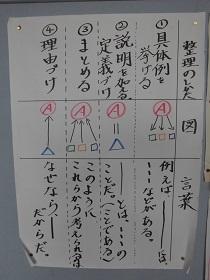 整理のしかた
図
言葉
①具体例を
挙げる
A
例えば——は、
……などがある。
②説明を加える
定義づけ
A
——とは、……の
ことだ(である)
③まとめる
A
このように
これらから考えられるのは
④理由づけ
A
なぜなら、——
だからだ。